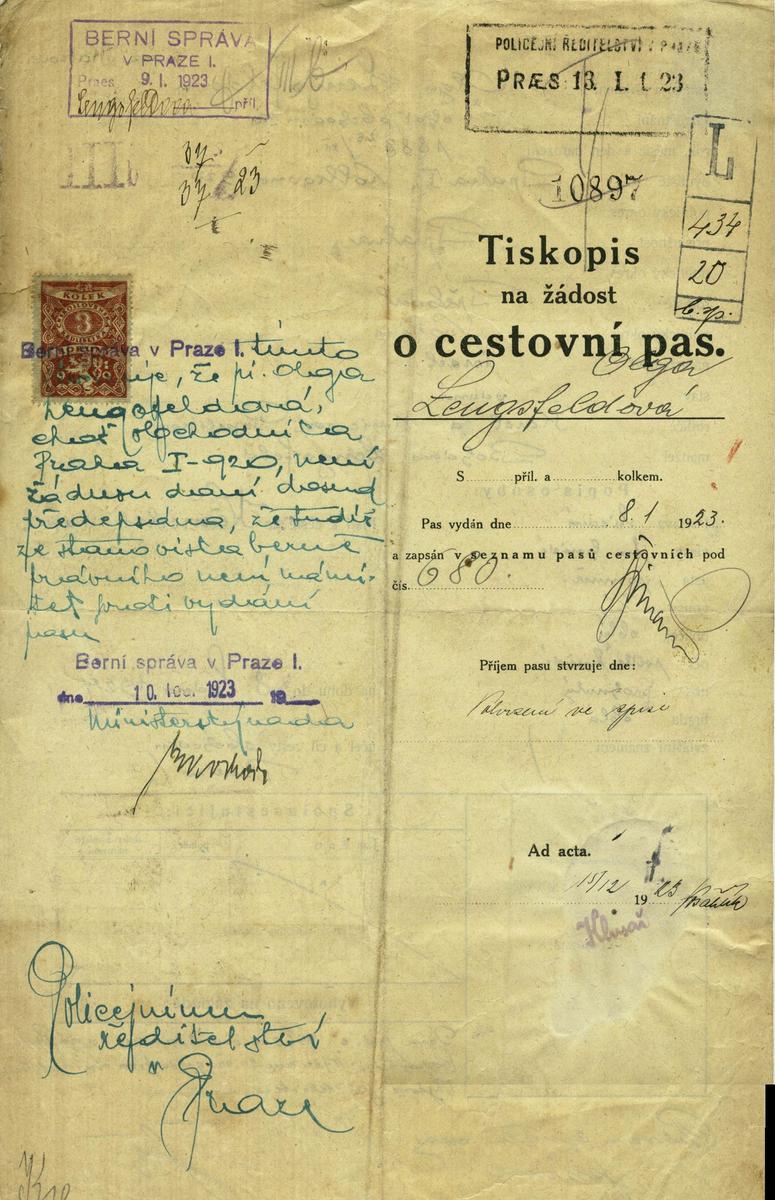 BERNÍ SPRÁVA
V PRAZE I.
Praes. 9. I. 1923
Lengsfeldová příl.
III
37
37 23
Berní správa v Praze I. tímto
že pí. Olga
Lengsfeldová,
choť obchodníka
Praha I-920, není
žádnou daní dosud
předepsána, že tudíž
ze stanoviska berně
právního není námi-
tek proti vydání
pasu
KOLEK
3
Berní správa v Praze I.
dne 10. 1923 19
Policejnímu
ředitelství
v
Praze
POLICEJNÍ ŘEDITELSTVÍ V PRAZE
PRÆS 13. I. 1923
10897
L
434
20
b.p.
Tiskopis
na žádost
o cestovní pas.
Olga
Lengsfeldová
S příl. a kolkem.
Pas vydán dne 8.1 1923.
a zapsán v seznamu pasů cestovních pod
čís. 680.
Příjem pasu stvrzuje dne:
Potvrzení ve spise
Ad acta.
15/12 1923